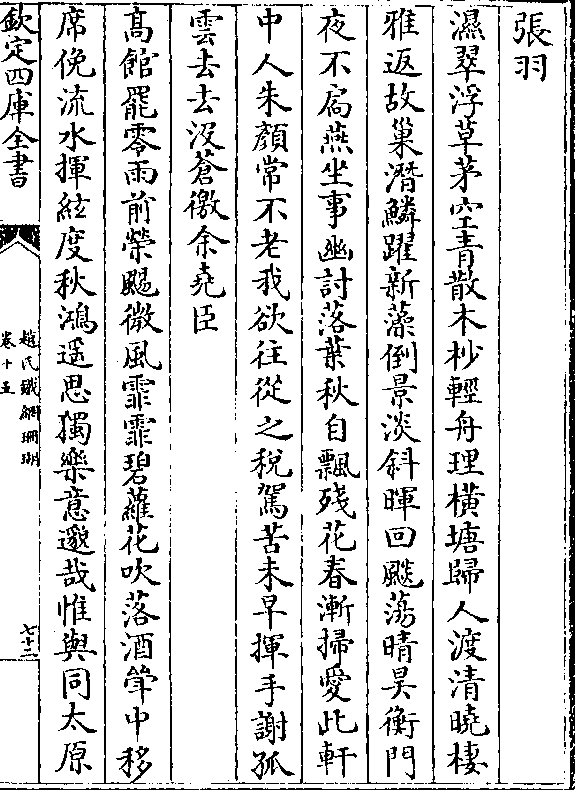 張羽
濕翠浮草茅空青散木杪輕舟理橫塘歸人渡清曉棲
雅返故巢潛鱗躍新藻倒景淡斜暉回飈蕩晴昊衡門
夜不扃燕坐事幽討落葉秋自飄殘花春漸掃愛此軒
中人朱顏常不老我欲往從之稅駕苦未早揮手謝孤
雲去去沒蒼徼余堯臣
髙館罷零雨前榮颺微風霏霏碧蘿花吹落酒斝中移
席俛流水揮絃度秋鴻遥思獨樂意邈哉惟與同太原
欽定四庫全書
趙氏鐵網珊瑚
卷十五
七十三